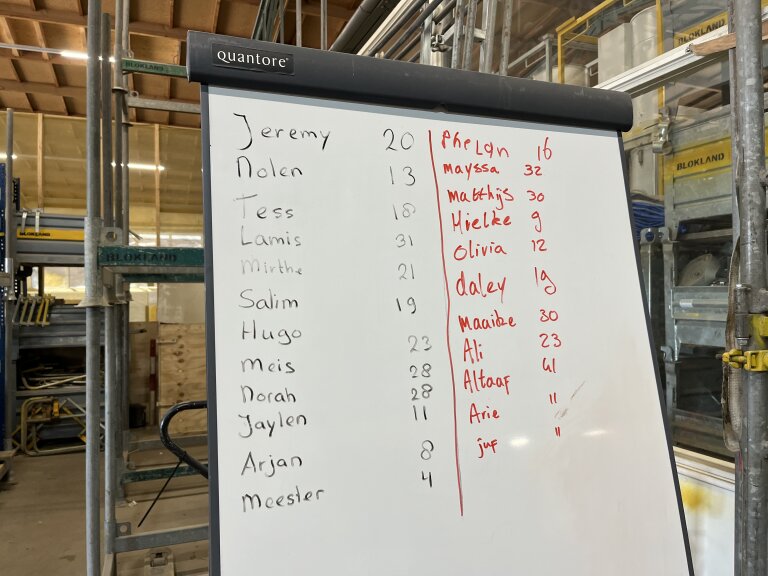 quantore
Jeremy 20
Nolen 13
Tess 18
Lamis 31
Mirthe 21
Salim 19
Hugo 23
Meis 28
Norah 28
Jaylen 11
Arjan 8
Meester 4
Phelan 16
mayssa 32
matthijs 30
Hielke 9
Olivia 12
daley 19
maaike 30
Ali 23
Altaaf 41
Arie "
juf "
BLOKLAND
BLOKLAND
BLOKLAND
BLOKLAND
BLOKLAND